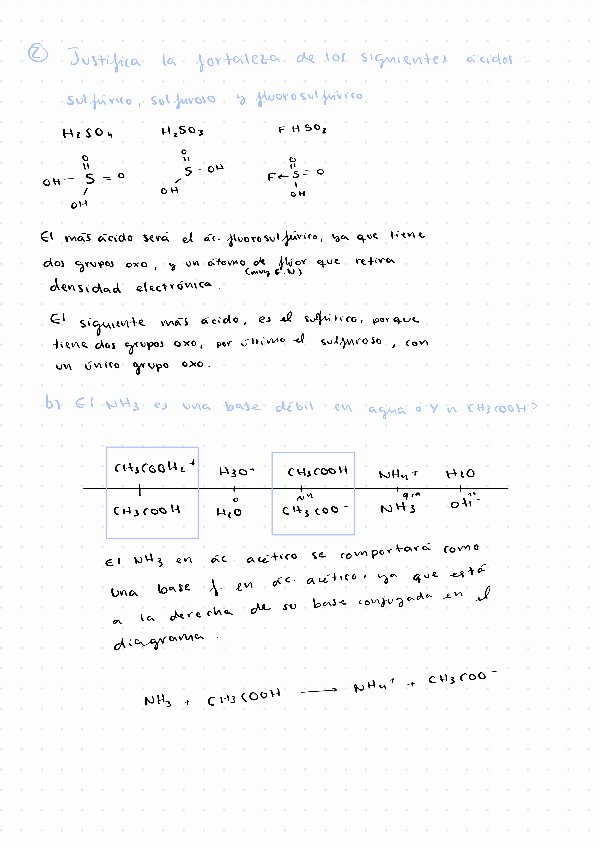 ② Justifica la fortaleza de los siguientes ácidos:
sulfúrico, sulfuroso y fluorosulfúrico.
H2SO4 H2SO3 FHSO3
O O O
OH - S = O S - OH F ← S = O
OH OH OH
El más ácido será el ác. fluorosulfúrico, ya que tiene
dos grupos oxo, y un átomo de flúor que retira
densidad electrónica.
El siguiente más ácido, es el sulfúrico, porque
tiene dos grupos oxo, por último el sulfuroso, con
un único grupo oxo.
b) El NH3 es una base débil en agua ¿Y n CH3COOH?
CH3COOH2+ H3O- CH3COOH NH4+ H2O
O
CH3COOH H2O CH3COO- NH3 OH-
El NH3 en ác acético se comportará como
una base f. en ác. acético, ya que está
a la derecha de su base conjugada en el
diagrama.
NH3 + CH3COOH → NH4+ + CH3COO-